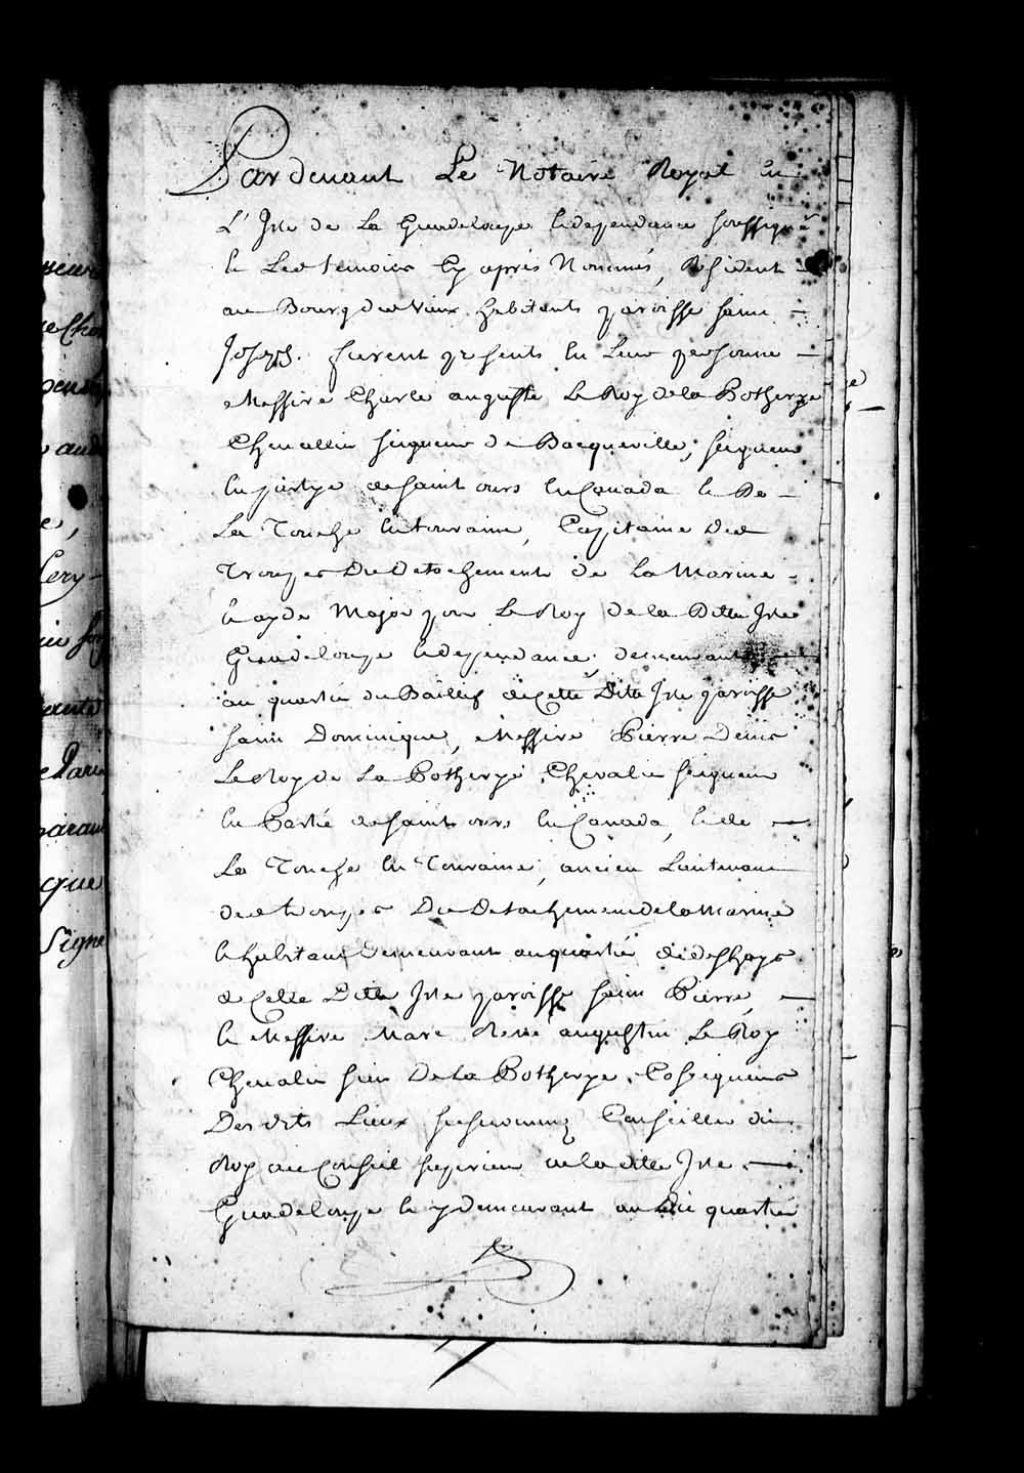 Pardevant Le Notaire Royal En
L'Isle de La Guadeloupe Et dependance soussigné
Et Les temoins Cy après Nommés, Résident
au Bourg des Vieux habitants paroisse saint
Joseph. furent presents En Leur personne
Messire Charle auguste Le Roy de la Botherye
Chevallier seigneur de Bacqueville, seigneur
En partye de saint ours En Canada Et De
La Touche En touraine, Capitaine Des
Troupes Du Detachement de La Marine
Et ayde Major pour Le Roy de la Ditte Isle
Guadeloupe Et dependance, demeurant
au quartié du Baillif de Cette Ditte Isle paroisse
saint Dominique, Messire Pierre Denis
Le Roy de La Potherye, Chevalier seigneur
En Partié de saint ours En Canada, Et de
La Touche En Touraine, ancien Lieutenant
des troupes Du Detachement de la Marine
Et habitant Demeurant au quartié de deshays
de Cette Ditte Isle paroisse saint Pierre,
Et Messire Marc René augustin Le Roy
Chevalier sieur De La Potherye, Coseigneur
Des dits Lieux susnommez Conseiller du
Roy au Conseil superieur de la ditte Isle
Guadeloupe Et y demeurant au Dit quartié